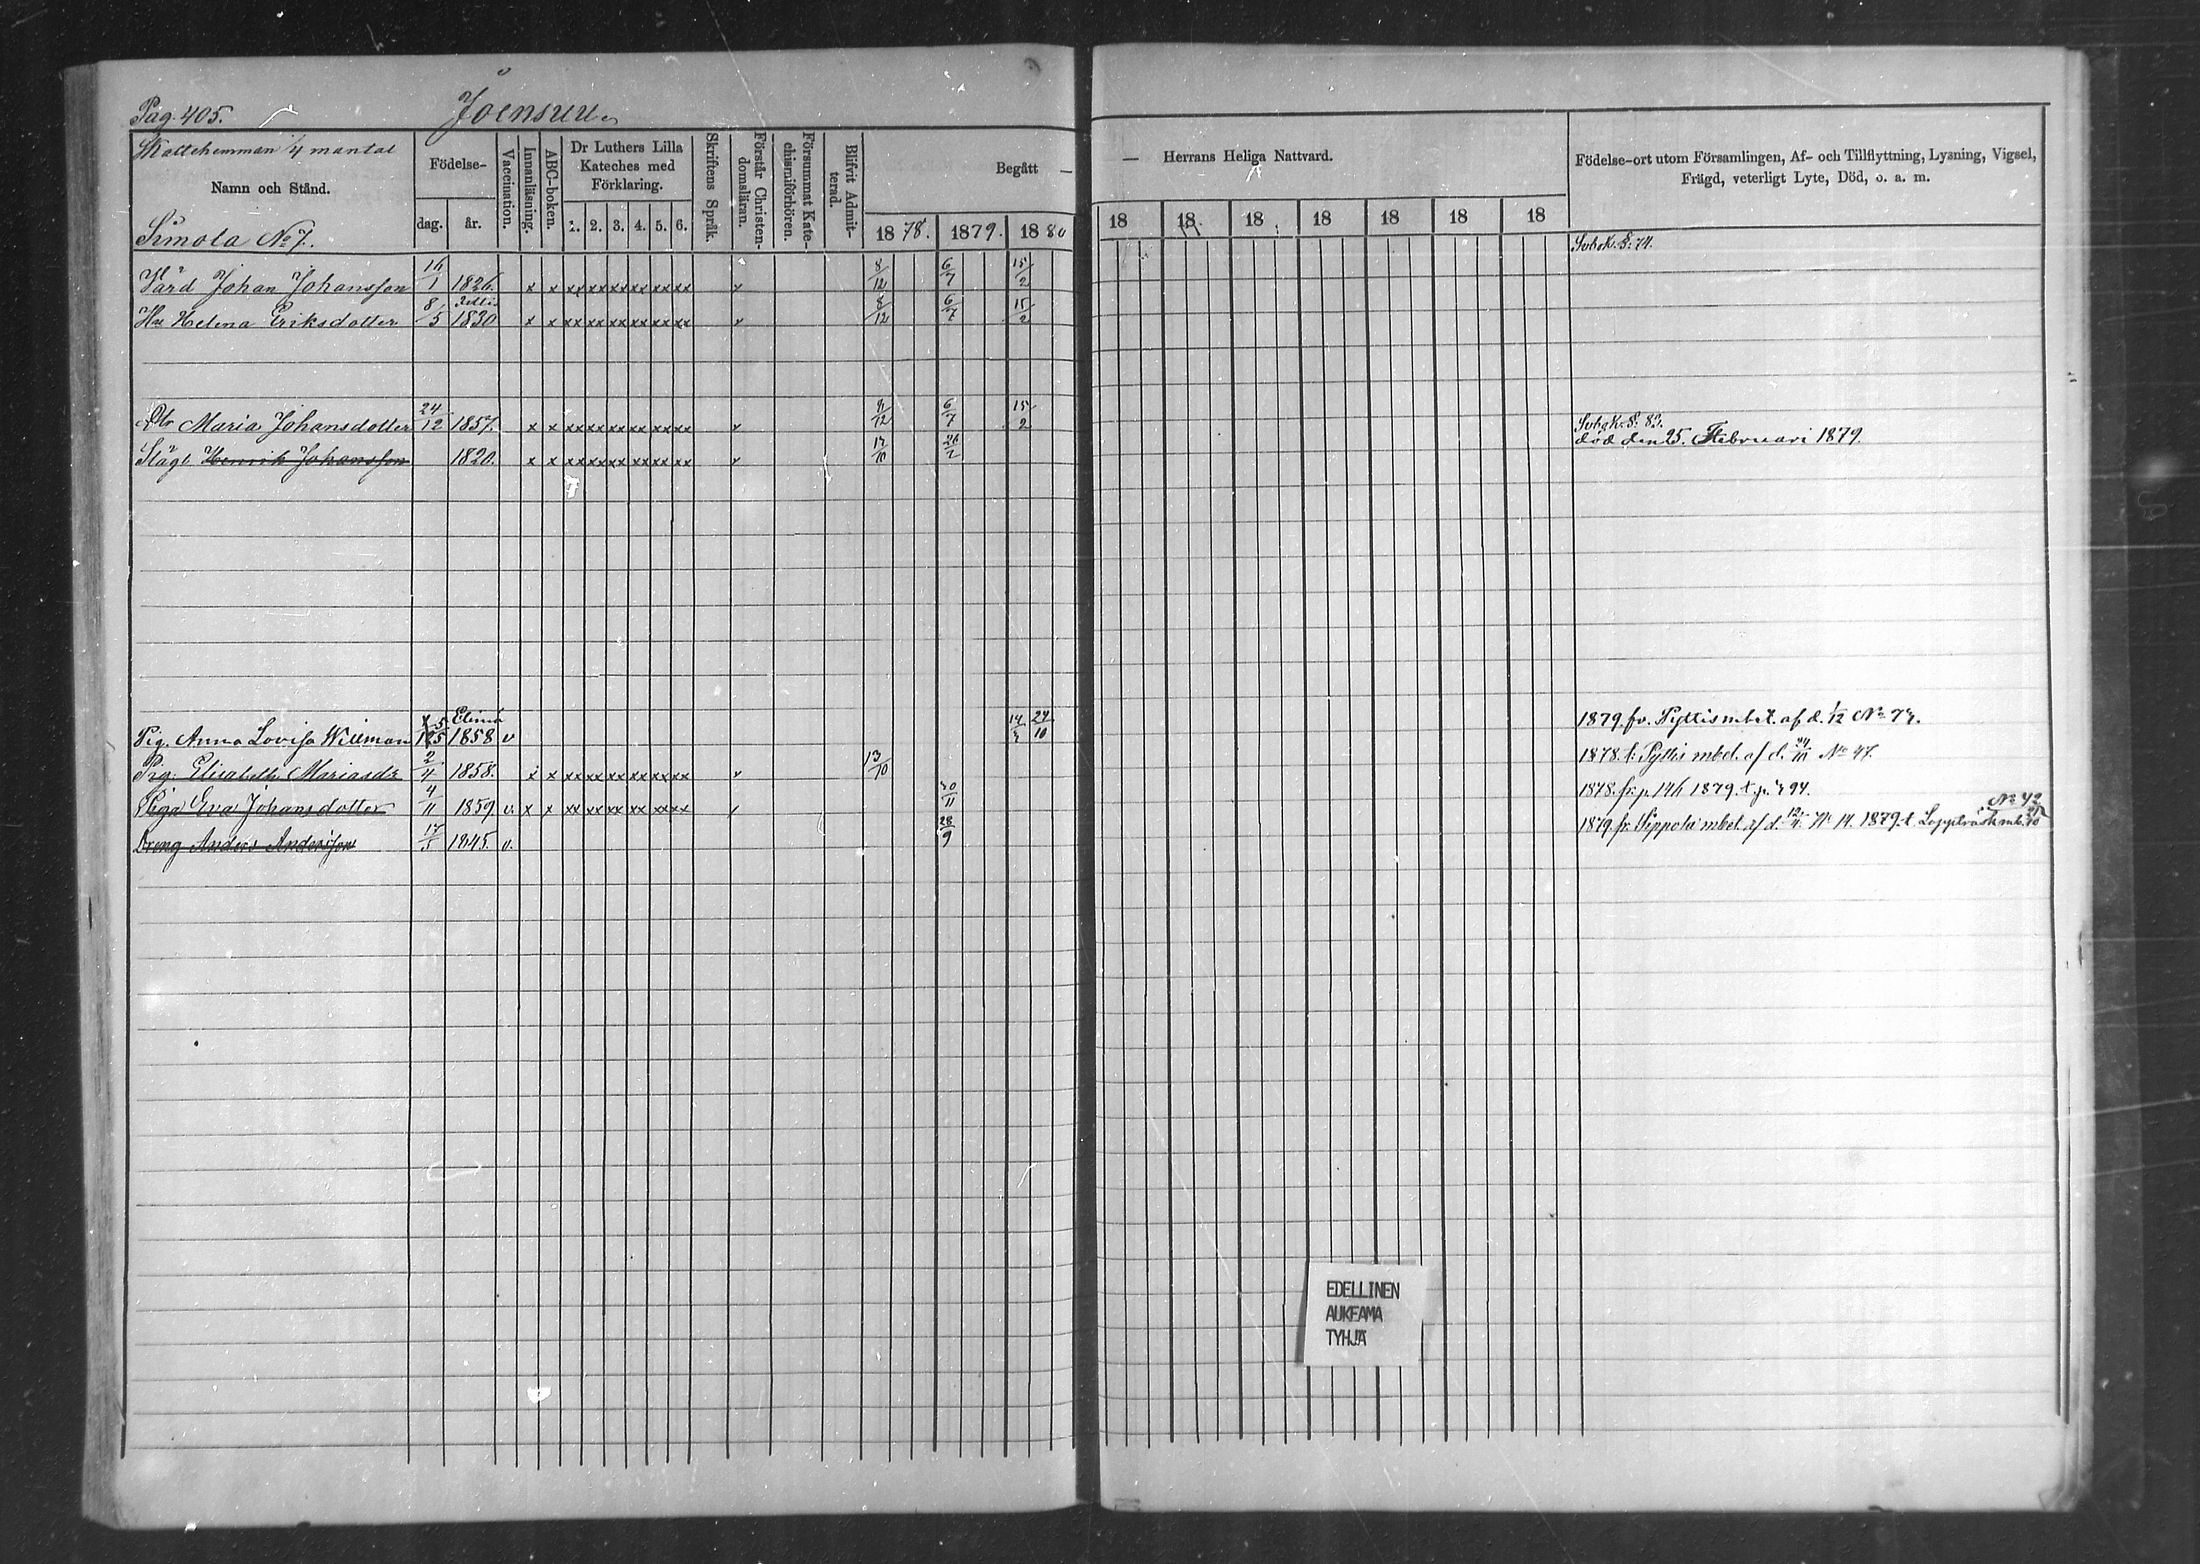 Pag. 405. Joensuu
Skattehemman 1/4 mantal
Namn och Stånd.
Simola No 7.
Födelse-
dag. år.
Vaccination.
Innanläsning.
ABC-boken.
Dr Luthers Lilla
Kateches med
Förklaring.
1. 2. 3. 4. 5. 6.
Skriftens Språk.
Förstår Christen-
domsläran.
Försummat Kate-
chismiförhören.
Blifvit Admit-
terad.
Begått —
1878. 1879. 1880
— Herrans Heliga Nattvard.
18 18 18 18 18 18 18
Födelse-ort utom Församlingen, Af- och Tillflyttning, Lysning, Vigsel,
Frägd, veterligt Lyte, Död, o. a. m.
Svbok. S. 74.
Värd Johan Johansson 16/1 1826. x x xx xx xx xx xx xx 8/12 6/7 15/2
Hu Helena Eriksdotter 8/5 1830 x x xx xx xx xx xx xx 8/12 6/7 15/2
Dtr Maria Johansdotter 24/12 1857. x x xx xx xx xx xx xx 8/12 6/7 15/2 Svbok. S. 83.
Slägt Henrik Johansson 1820. x x xx xx xx xx xx xx död den 25. Februari 1879.
Pig. Anna Lovisa Willman Elimä 1858 v 24/10 1879. fr. Pyttis mbet. af d. 1/12 No
Pig. Elisabeth Mariasdr 2/4 1858. x x xx xx xx xx xx xx 13/10 1878. fr. Pyttis mbet. af d. No 47.
Piga Eva Johansdotter 4/11 1859. v. x x xx xx xx xx xx xx 1878. fr. p. 146 1879. t. p. 94.
Dreng Anders Andersson 1845. v. 28/9 1879. fr. Sippola mbet. af d. 12/4. No 14. 1879. t. Lappträsk mb. No 42
EDELLINEN
AUKEAMA
TYHJÄ